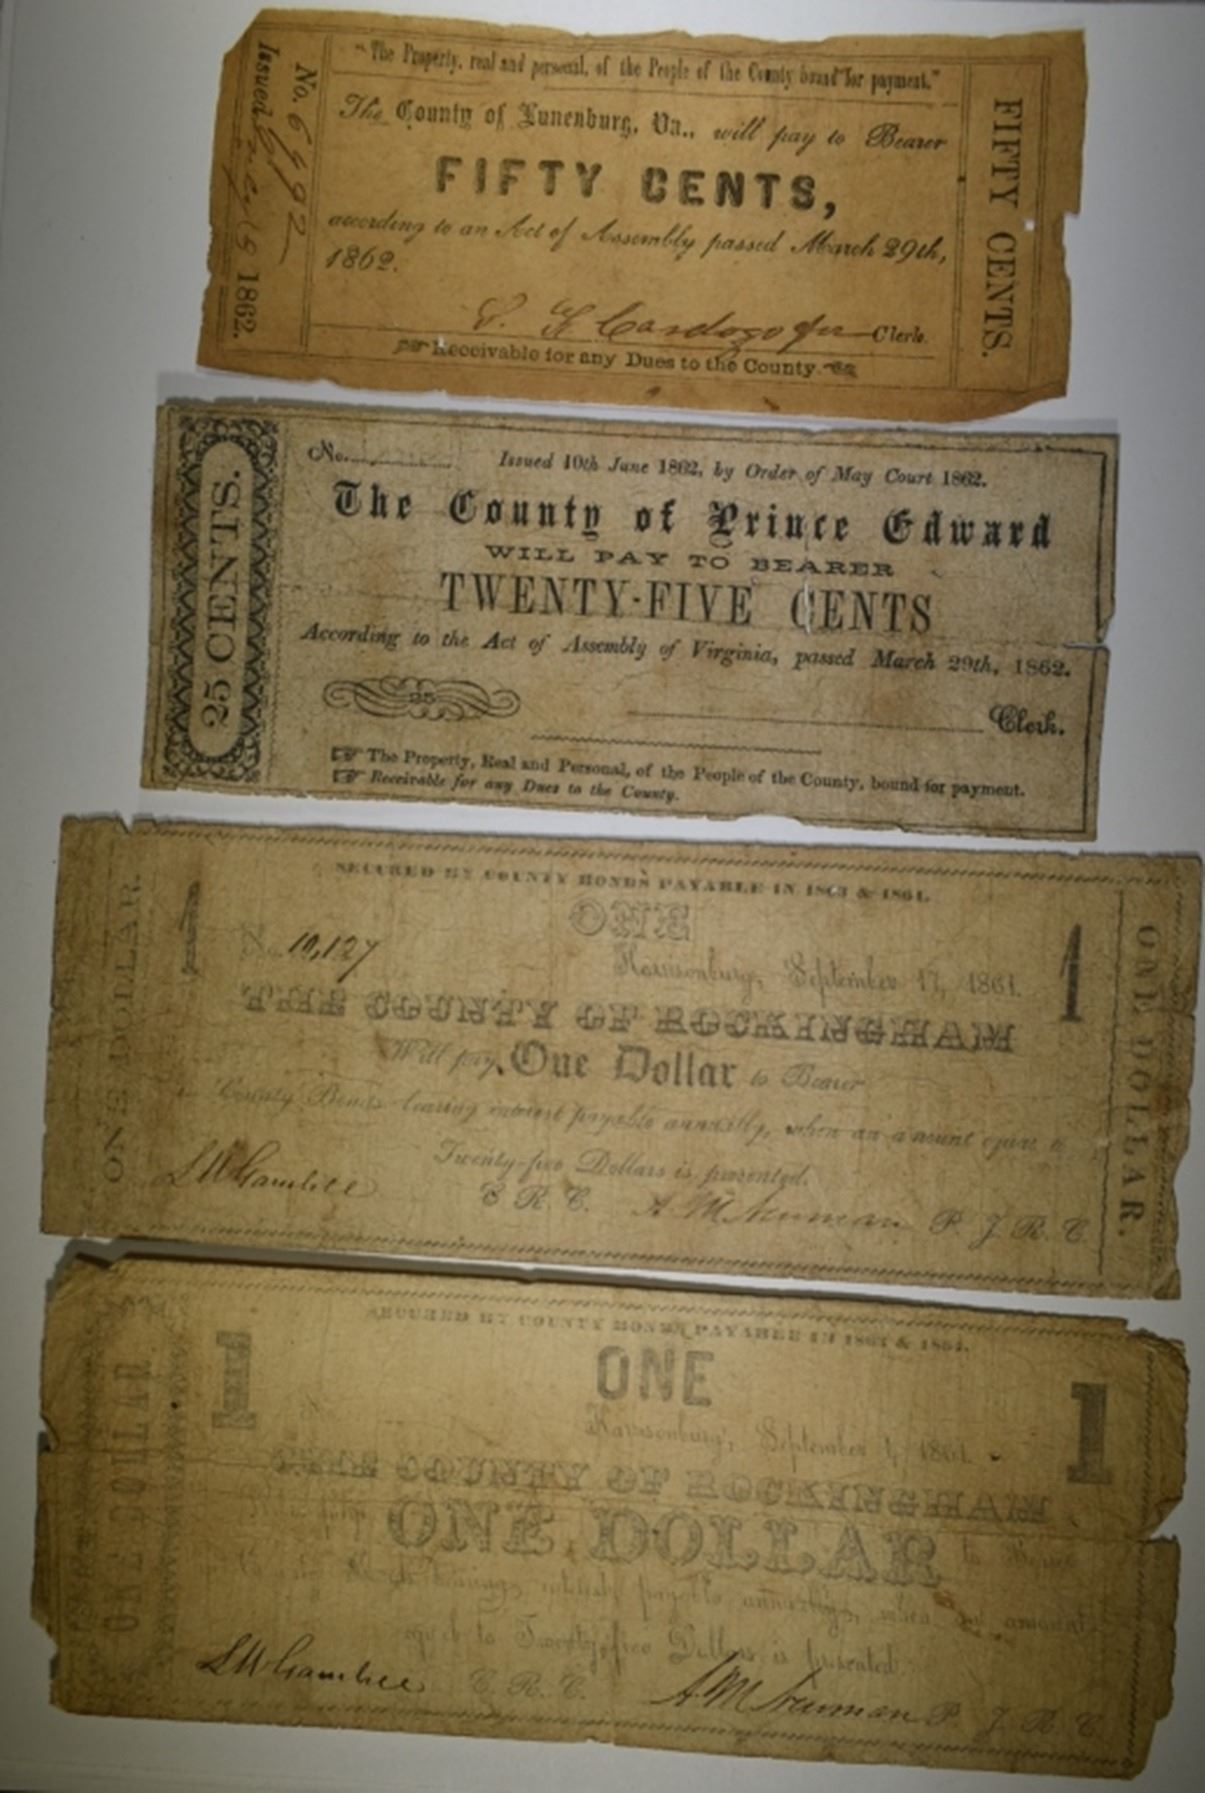 "The Property, real and personal, of the People of the County bound for payment."
The County of Lunenburg, Va., will pay to Bearer
FIFTY CENTS,
according to an Act of Assembly passed March 29th,
1862.
Clerk.
Receivable for any Dues to the County.
No. 6492
Issued 1862.
FIFTY CENTS.
25 CENTS.
No. Issued 10th June 1862, by Order of May Court 1862.
The County of Prince Edward
WILL PAY TO BEARER
TWENTY-FIVE CENTS
According to the Act of Assembly of Virginia, passed March 29th, 1862.
25
Clerk.
The Property, Real and Personal, of the People of the County, bound for payment.
Receivable for any Dues to the County.
ONE DOLLAR.
SECURED BY COUNTY BONDS PAYABLE IN 1863 & 1864.
1 ONE 1
No. 10,127 Harrisonburg, September 17, 1861.
THE COUNTY OF ROCKINGHAM
Will pay One Dollar to Bearer
in County Bonds bearing interest payable annually, when an amount equal to
Twenty-five Dollars is presented.
S W Gambill C. R. C. A M Newman P. J. R. C.
ONE DOLLAR.
ONE DOLLAR
SECURED BY COUNTY BONDS PAYABLE IN 1863 & 1864.
1 ONE 1
Harrisonburg, September 1861.
THE COUNTY OF ROCKINGHAM
ONE DOLLAR to
bearing interest payable annually, when an amount
equal to Twenty-five Dollars is presented.
C. R. C. A M Newman P. J. R. C.